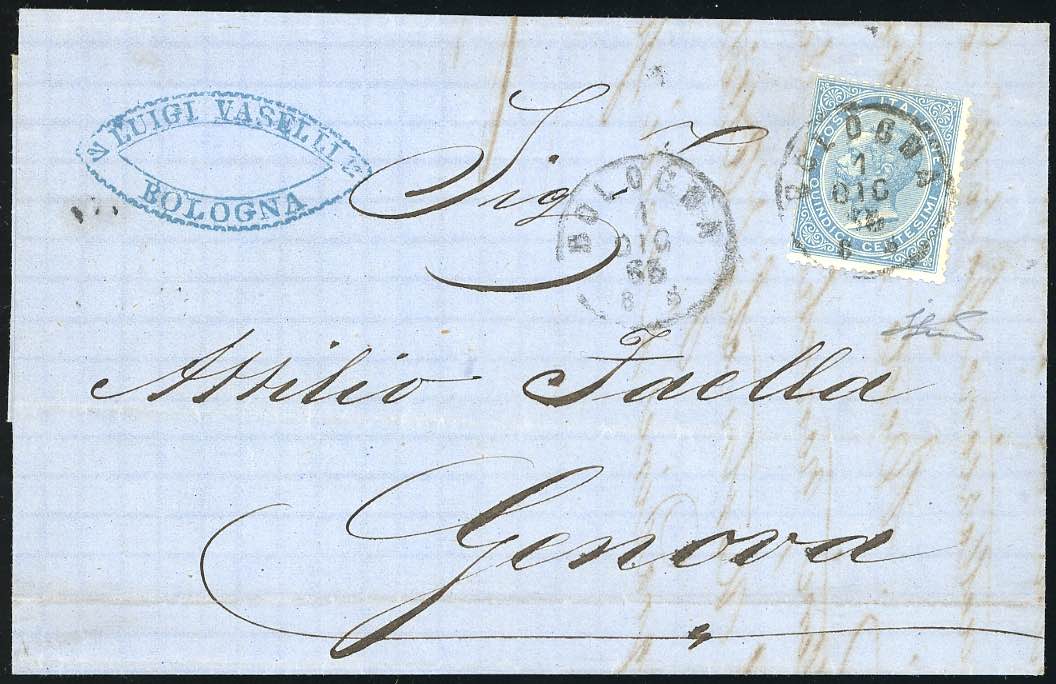 LUIGI VASELLI
BOLOGNA
Sigr
Attilio Faella
Genova
BOLOGNA
1
DIC
65
8 S
POSTE ITALIANE
QUINDICI CENTESIMI
BOLOGNA
1
DIC